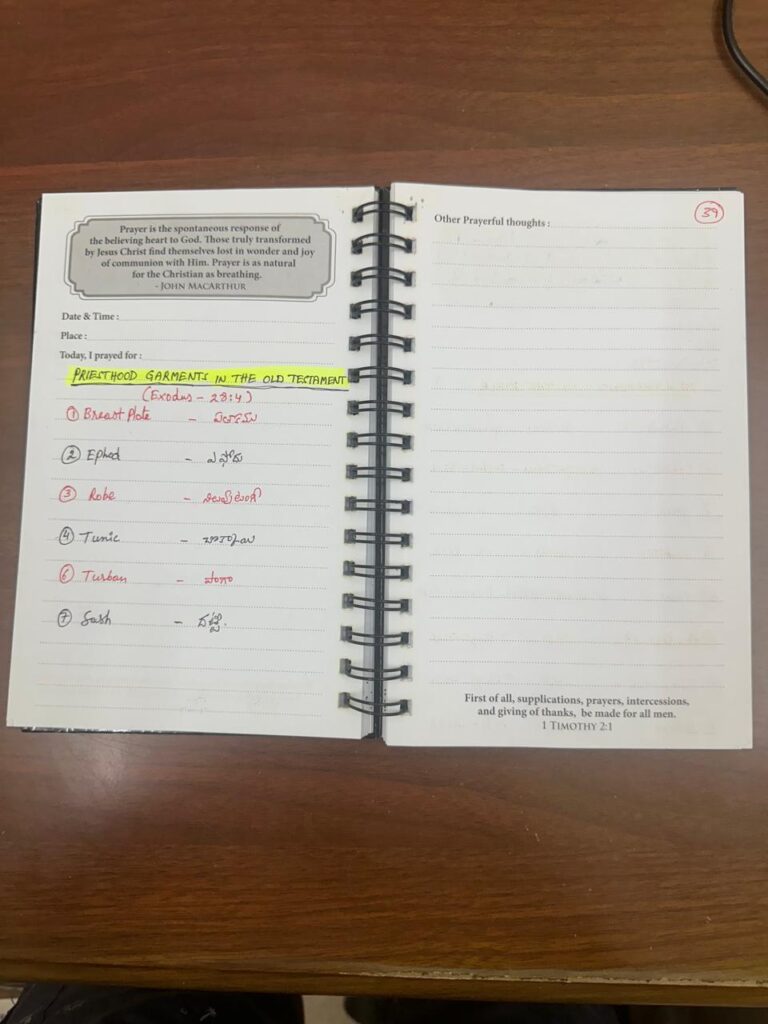 Prayer is the spontaneous response of
the believing heart to God. Those truly transformed
by Jesus Christ find themselves lost in wonder and joy
of communion with Him. Prayer is as natural
for the Christian as breathing.
- JOHN MACARTHUR
Date & Time :
Place :
Today, I prayed for :
PRIESTHOOD GARMENTS IN THE OLD TESTAMENT
(Exodus - 28:4)
① Breast Plate - పతకము
② Ephod - ఎఫోదు
③ Robe - నిలువుటంగీ
④ Tunic -
⑥ Turban - పాగా
⑦ Sash - దట్టి.
39
Other Prayerful thoughts :
First of all, supplications, prayers, intercessions,
and giving of thanks, be made for all men.
1 TIMOTHY 2:1